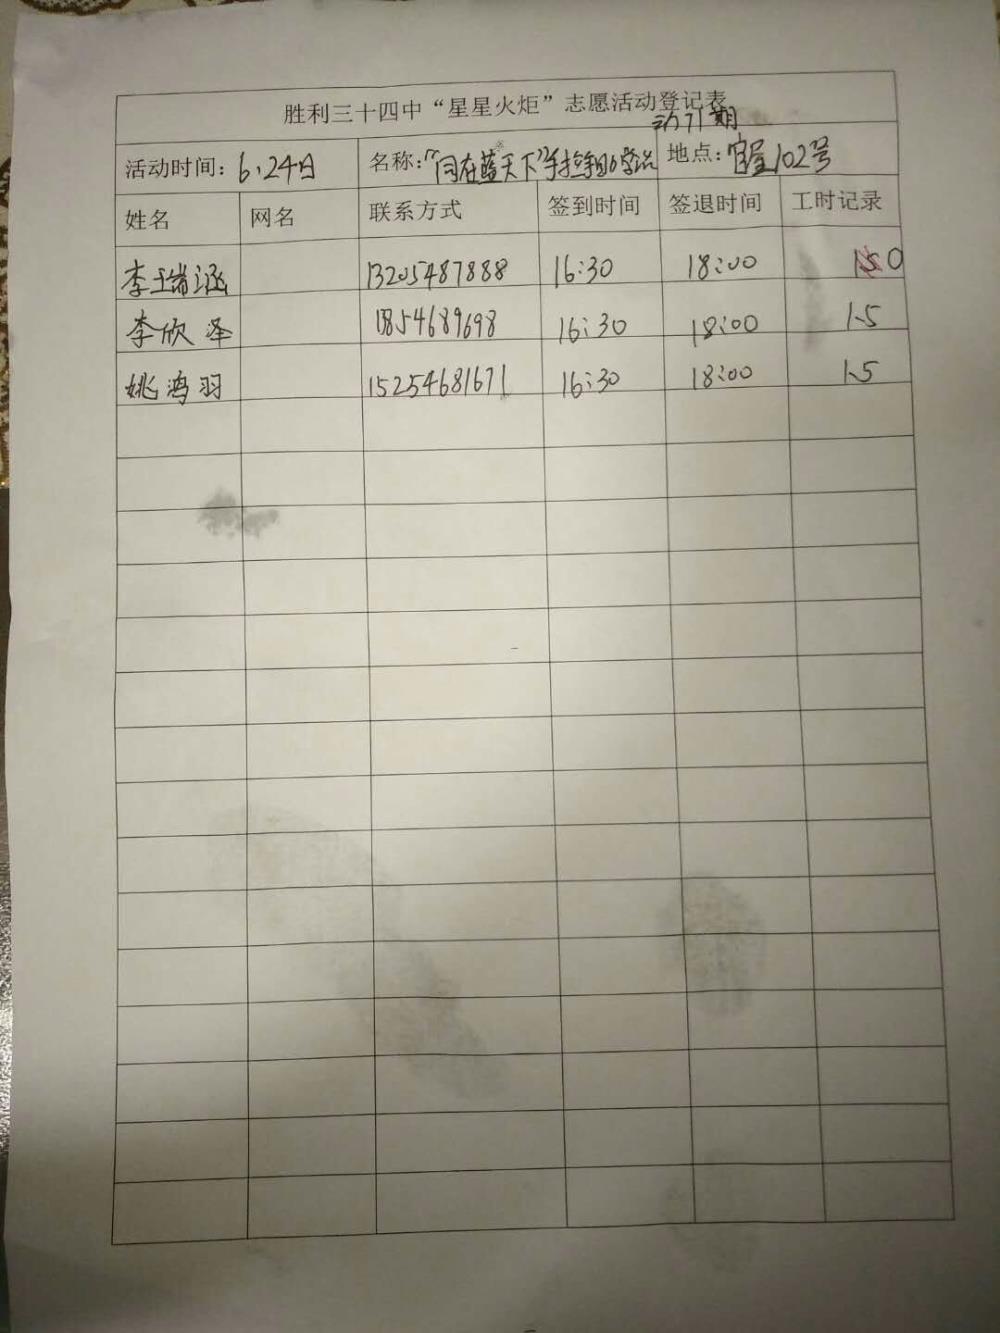 胜利三十四中“星星火炬”志愿活动登记表
活动时间：6.24日 名称：“同在蓝天下”手拉手 地点：官屋102号
动71期
姓名 网名 联系方式 签到时间 签退时间 工时记录
李瑞涵 13205487888 16:30 18:00 0
李欣泽 1854689698 16:30 18:00 1.5
姚鸿羽 15254681671 16:30 18:00 1.5